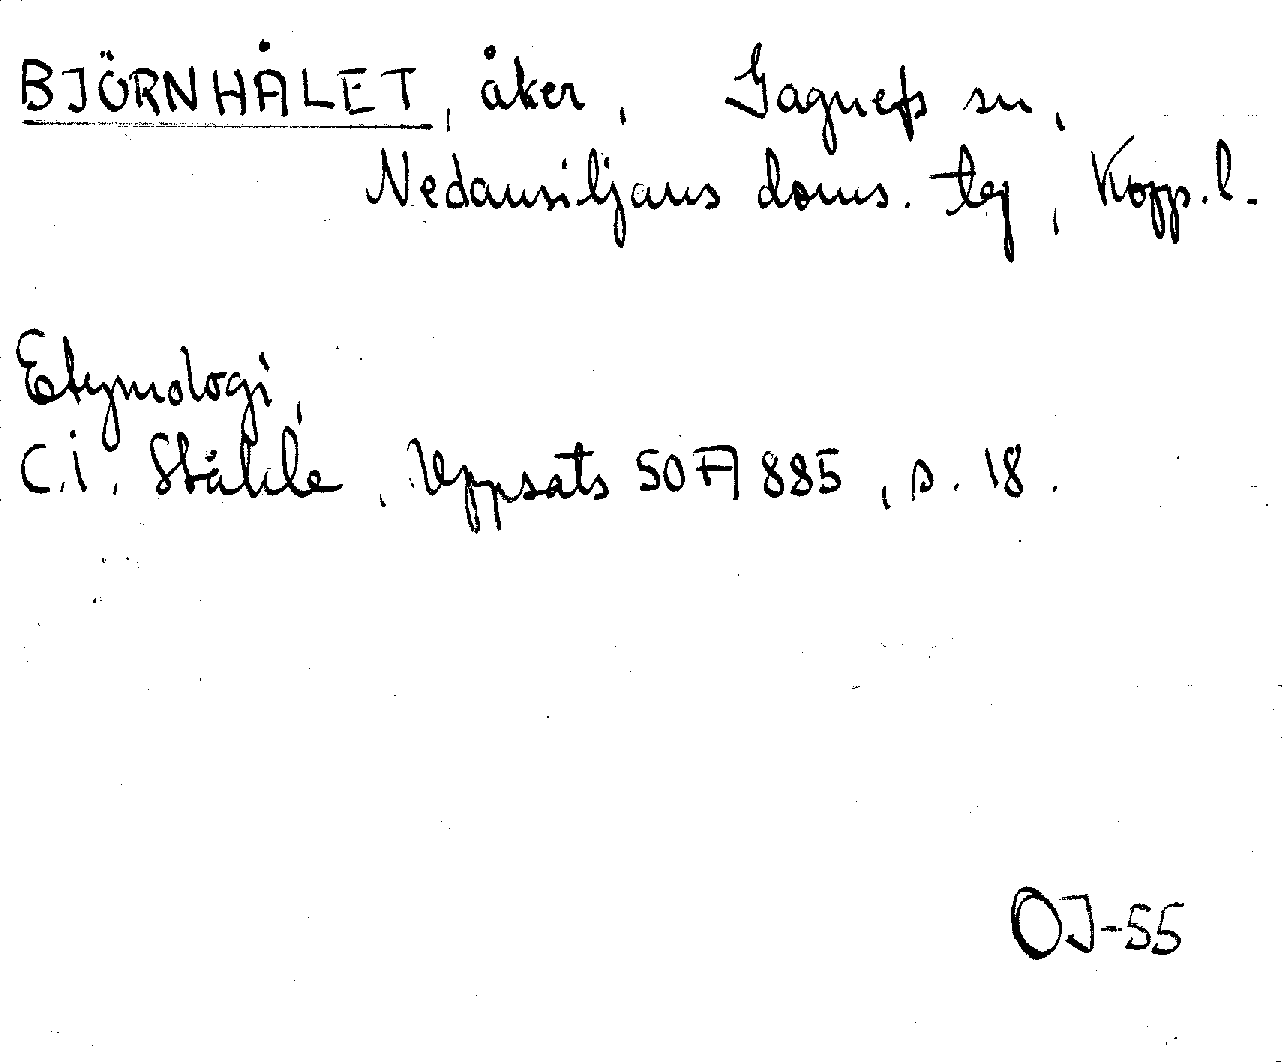 BJÖRNHÅLET, åker, Gagnefs sn,
Nedansiljans doms. tlg, Kopp. l.
Etymologi,
C.I. Ståhle, Uppsats 507A 885, s. 18.
OJ-55